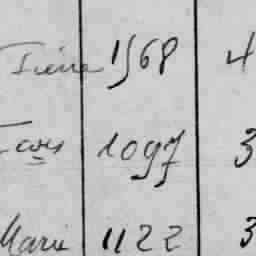 Pierre 1568 4
1097 3
Marie 1122 3